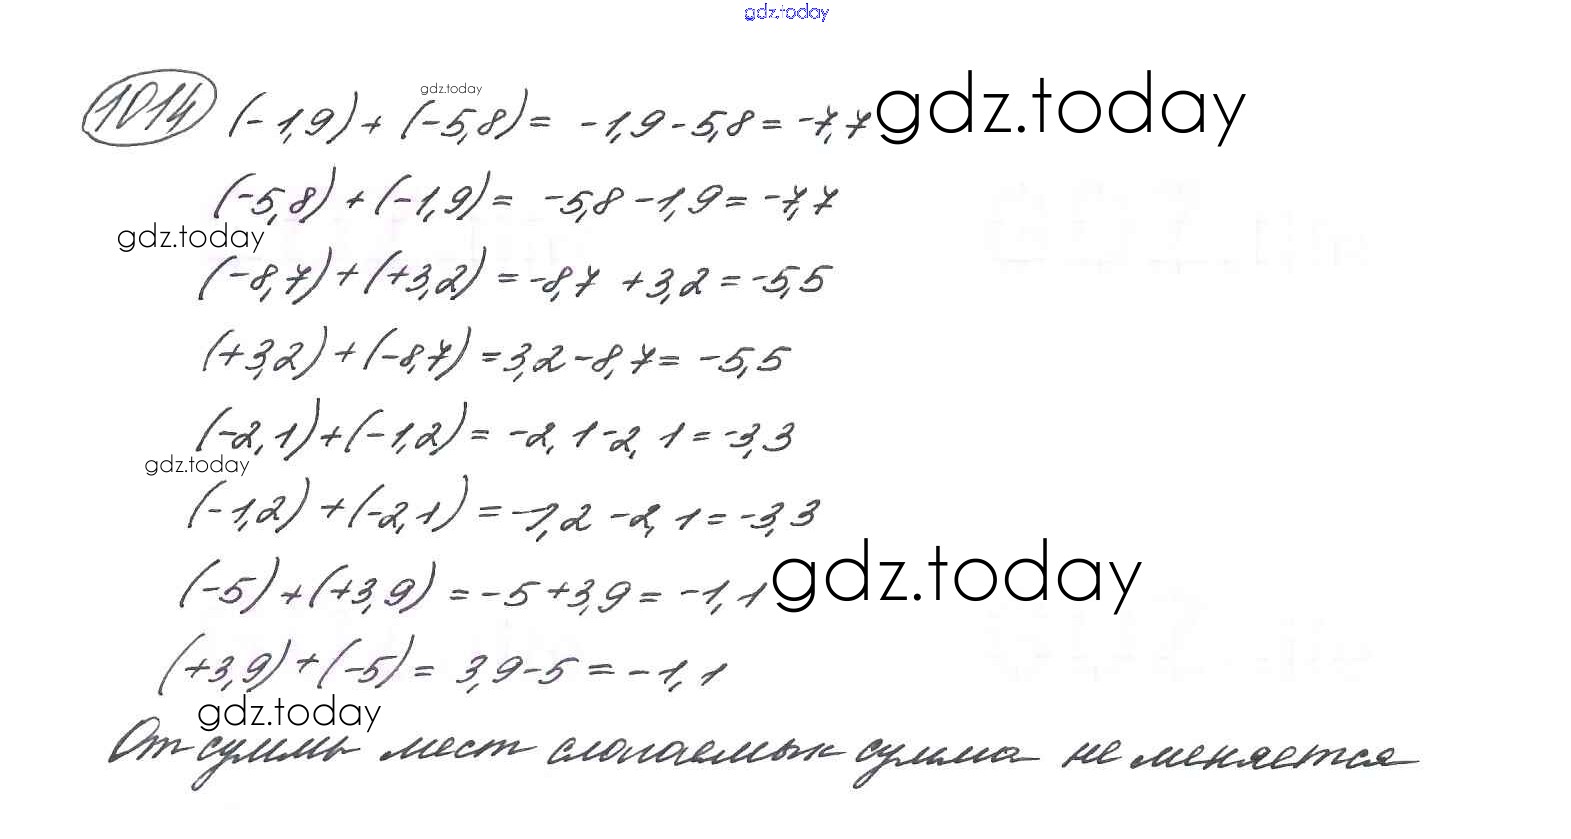 gdz.today
1014 (-1,9) + (-5,8) = -1,9 - 5,8 = -7,7 gdz.today
gdz.today
(-5,8) + (-1,9) = -5,8 - 1,9 = -7,7
gdz.today
(-8,7) + (+3,2) = -8,7 + 3,2 = -5,5
(+3,2) + (-8,7) = 3,2 - 8,7 = -5,5
(-2,1) + (-1,2) = -2,1 - 2,1 = -3,3
gdz.today
(-1,2) + (-2,1) = -1,2 - 2,1 = -3,3
(-5) + (+3,9) = -5 + 3,9 = -1,1 gdz.today
(+3,9) + (-5) = 3,9 - 5 = -1,1
gdz.today
От суммы мест слогаемых сумма не меняется